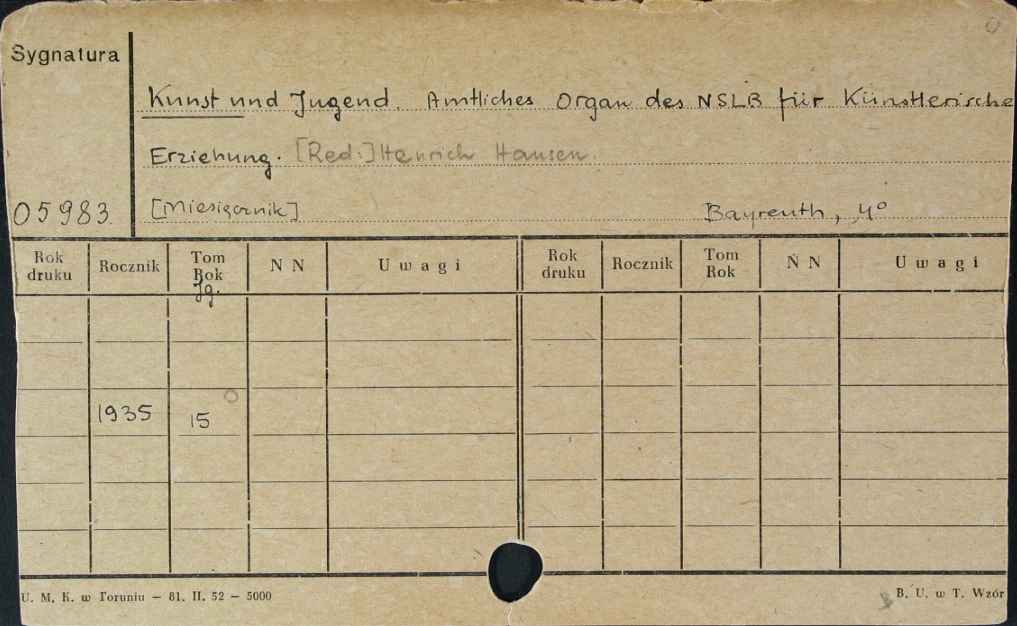 Sygnatura
Kunst und Jugend. Amtliches Organ des NSLB für Künstlerische
Erziehung. [Red:] Henrich Hansen.
05983. [Miesięcznik] Bayreuth, 4°
Rok druku Rocznik Tom Rok Jg. N N Uwagi Rok druku Rocznik Tom Rok N N Uwagi
1935 15
U. M. K. w Toruniu — 81. II. 52 — 5000 B. U. w T. Wzór